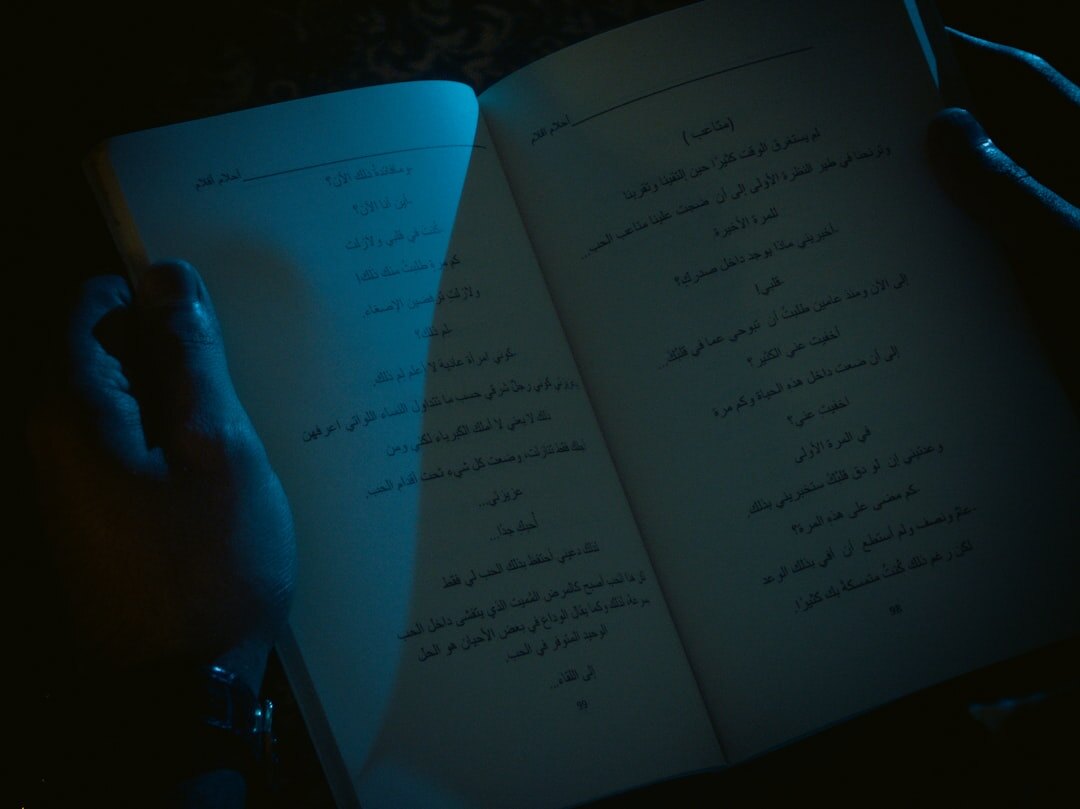 أحلام أقلام
(متاعب )
لم يستغرق الوقت كثيرًا حين التقينا وتقربنا
وترنحنا في طير النظرة الأولى إلى أن ضجت علينا متاعب الحب...
للمرة الأخيرة
-أخبريني ماذا يوجد داخل صدركِ؟
-قلبي!
إلى الآن ومنذ عامين طلبتُ أن تبوحي عما في قلبُك...
أخفيت عني الكثير؟
إلى أن ضعت داخل هذه الحياة وكم مرة
أخفيت عني؟
في المرة الأولى
وعدتيني إن لو دق قلبُك ستخبريني بذلك.
-كم مضى على هذه المرة؟
-عامٌ ونصف ولم أستطع أن أفي بذلك الوعد
لكن رغم ذلك كُنتُ متمسكةً بك كثيرًا.
98
أحلام أقلام
-وما فائدة ذلك الآن؟
-أين أنا الآن؟
-أنت في قلبي ولازلت
كم مرة طلبت منك ذلك!
ولازلت ترفضين الإصغاء.
-لم ذلك؟
-كوني امرأة عادية لا أعلم لِم ذلك.
كوني رجلٌ شرقي حسب ما تتداول النساء اللواتي اعرفهن
ذلك لا يعني لا أملك الكبرياء لكني ومن
أجلك فقط تنازلت، وضعت كل شيء تحت أقدام الحب.
عزيزتي...
أُحبك جدًا...
لذلك دعيني أحتفظ بذلك الحب لي فقط
الحب أصبح كالمرض المُميت الذي يتفشى داخل الحب
لذلك وكما يقال الوداع في بعض الأحيان هو الحل
الوحيد المتوفر في الحب.
إلى اللقاء...
99